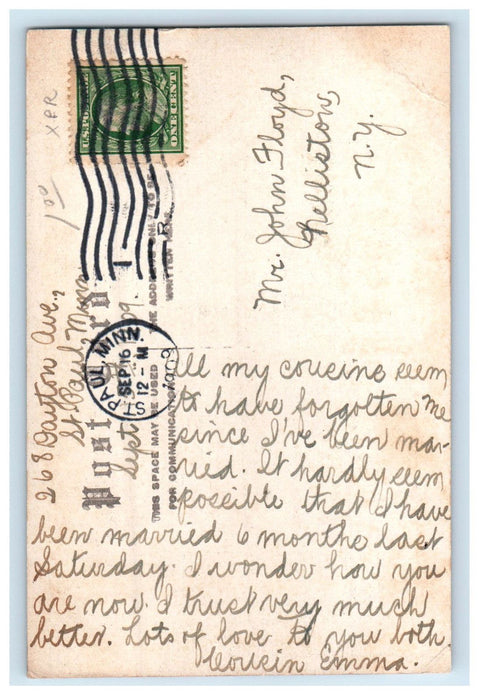 U.S. POSTAGE
ONE CENT
XPR
1 00
Mr. John Floyd,
Nelliston,
N.Y.
268 Dayton Ave.,
St. Paul, Minn.
Sept
Post Card
THIS SPACE MAY BE USED
FOR COMMUNICATION
THE ADDRESS ONLY TO BE
WRITTEN HERE
ST. PAUL MINN.
SEP 16
12 - M
1909
All my cousins seem
to have forgotten me
since I've been mar-
ried. It hardly seems
possible that I have
been married 6 months last
Saturday. I wonder how you
are now. I trust very much
better. Lots of love to you both.
Cousin Emma.